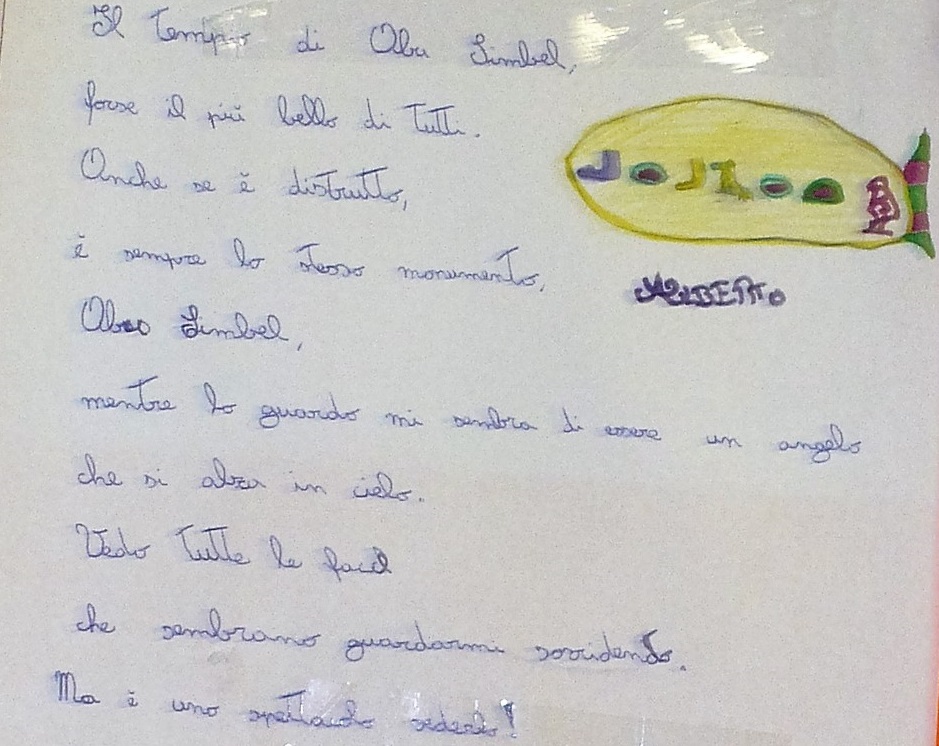 Il tempio di Abu Simbel,
forse il più bello di tutti.
Anche se è distrutto,
è sempre lo stesso monumento,
Abu Simbel,
mentre lo guardo mi sembra di essere un angelo
che si alza in cielo.
Vedo tutte le facce
che sembrano guardarmi sorridendo.
Ma è uno spettacolo vederlo!
ALBERTO